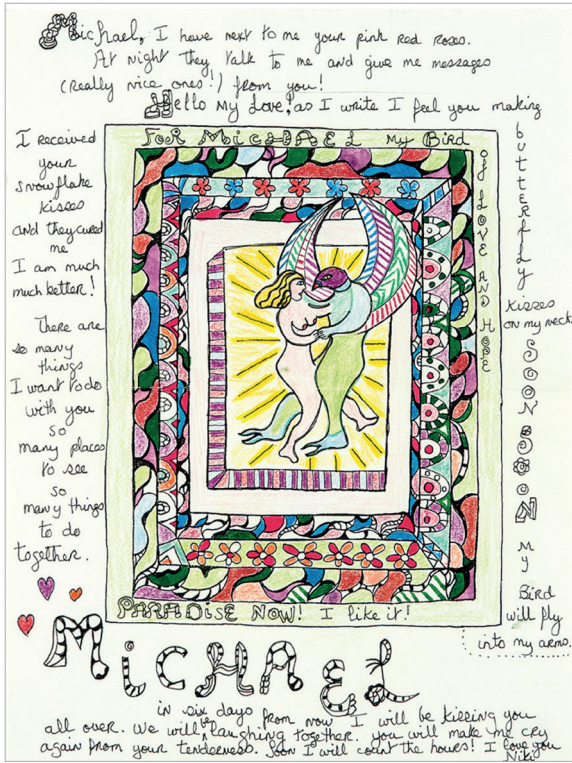 Michael, I have next to me your pink red roses.
At night they talk to me and give me messages
(really nice ones!) from you!
Hello my Love! as I write I feel you making
butterfly
kisses
on my neck.
SOON SOON
My
Bird
will fly
into my arms.
I received
your
snowflake
kisses
and they cured
me
I am much
much better!
There are
so many
things
I want to do
with you
so
many places
to see
so
many things
to do
together.
FOR MiCHAEL my Bird
of LOVE AND HOPE
PARADISE NOW! I like it!
MiCHAEL
in six days from now I will be kissing you
all over. We will be laughing together. you will make me cry
again from your tenderness. Soon I will count the hours! I love you
Niki